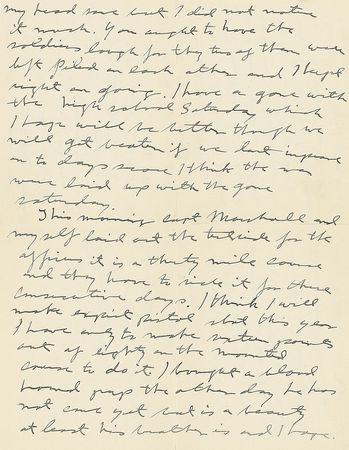 my head some but I did not notice
it much. You ought to have the
soldiers laugh for they two of them were
left piled on each other and I kept
right on going. I have a game with
the high school Saturday which
I hope will be better though we
will get beaten if we don't improve
on to days score I think the men
were laid up with the game
Saturday.
This morning Capt Marshall and
my self laid out the for the
officers it is a thirty mile course
and they have to ride it for three
consecutive days. I think I will
make expert pistol shot this year
I have only to make sixteen points
out of eighty on the mounted
course to do it. I bought a blood
hound pup the other day he has
not come yet but is a beauty
at least his brother is and I hope.